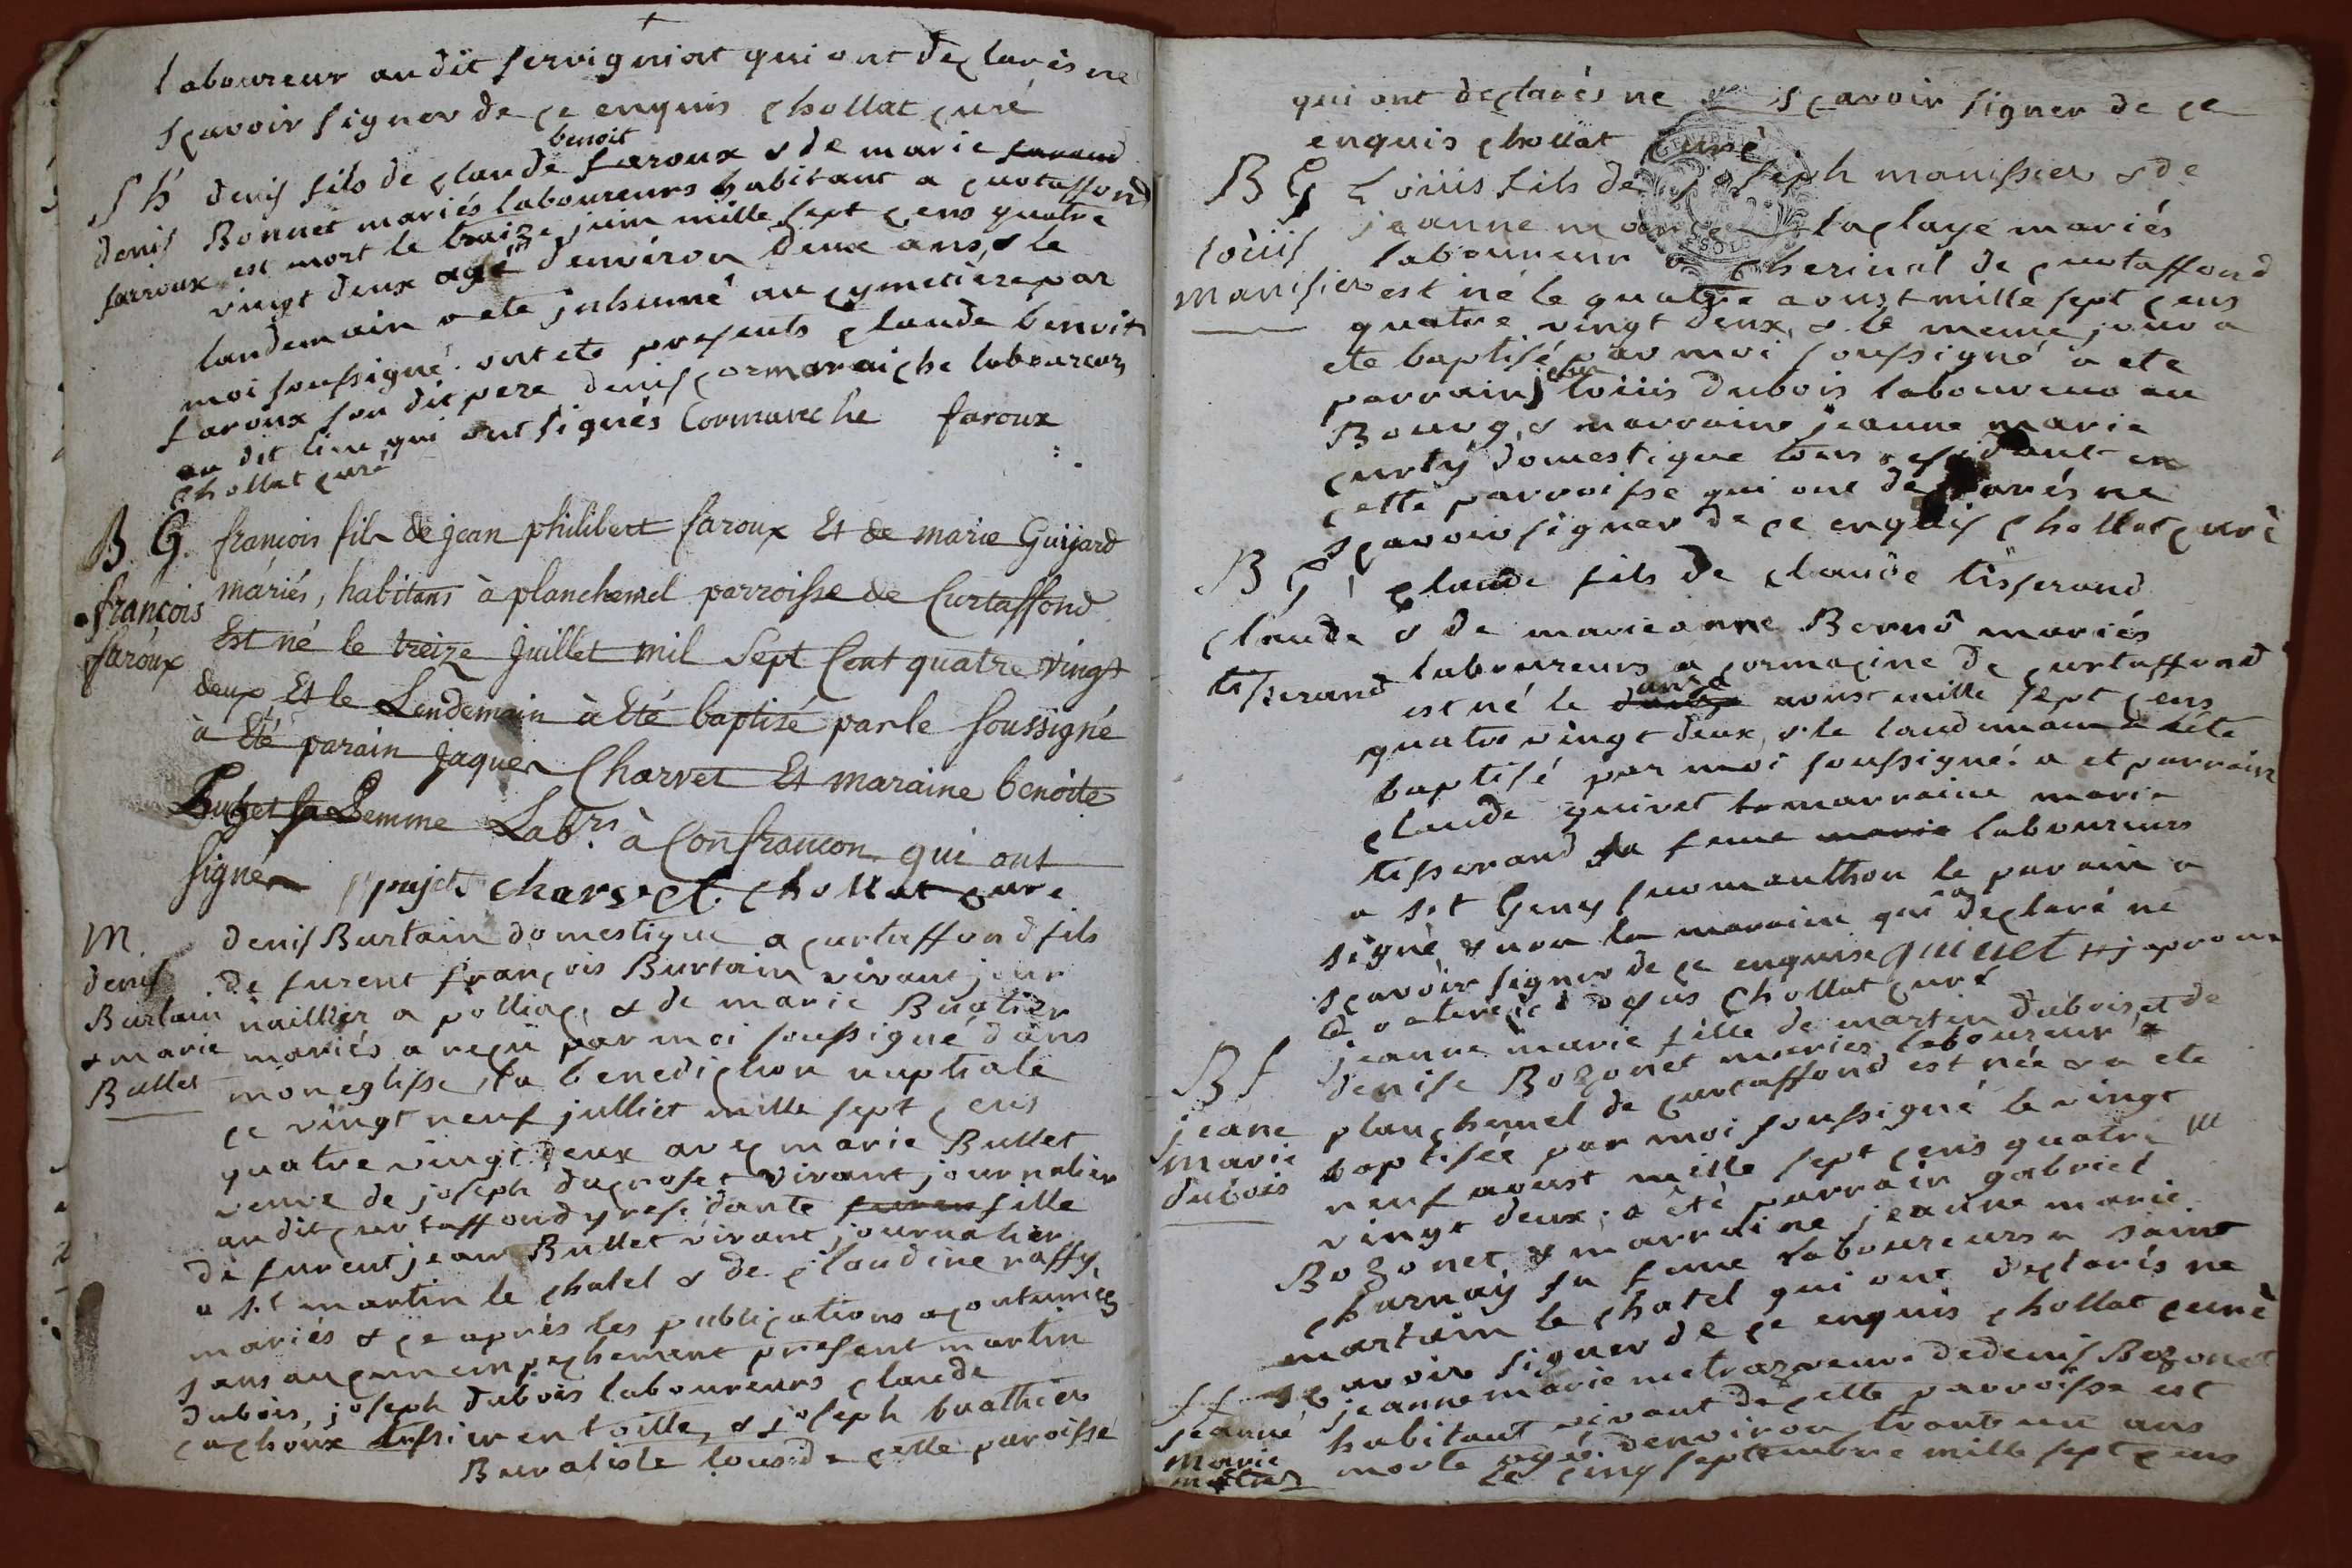 laboureur au dit servigniat qui ont declarés ne
sçavoir signer de ce enquis chollat curé
S h denis fils de claude benoit faroux & de marie
denis Bonnet mariés laboureurs habitant a curtaffond
farroux est mort le traize juin mille sept cens quatre
vingt deux agé d'environ deux ans, & le
landemain a ete jnhumé au cymetiere par
moi soussigné. ont ete presents claude benoit
faroux son dit pere denis cormaraiche laboureurs
au dit lieu qui ont signés Cormareche faroux
chollat curé
B. G. françois fils de jean philibert faroux Et de marie Guijard
françois mariés, habitans à planchemel parroisse de Curtaffond
faroux Est né le treize juillet mil Sept Cent quatre vingt
deux, Et le Lendemain à Eté baptizé par le Soussigné
à Eté parain jaques Charvet Et maraine benoite
Pujet sa femme Labrs. à Confrancon qui ont
signés pujet charvet chollat cure
M. denis Burtain domestique a curtaffond fils
denis de furent françois Burtain vivant jour
Burtain naillier a polliac, & de marie Buatier
& marie mariés a reçu par moi soussigné dans
Bullet mon eglisse, la benediction nuptiale
ce vingt neuf julliet mille sept cens
quatre vingt deux avec marie Bullet
veuve de joseph ducroset vivant journalier
au dit curtaffond y residante furen fille
de furent jean Bullet vivant journalier
a s.t martin le chatel & de claudine raffy
mariés & ce aprés les publications acoutumées
sans aucun empechement present martin
dubois, joseph dubois laboureurs claude
cachoux tissier en toille, & joseph buathier
Buraliste tous de cette paroisse
qui ont declarés ne sçavoir signer de ce
enquis chollat curé
B G Loüis fils de joseph manissier & de
jeanne marie laclaye mariés
loüis laboureur a cherinal de curtaffond
manisier est né le quatre aoust mille sept cens
quatre vingt deux, & le meme jour a
ete baptisé par moi soussigné a ete
parrain loüis dubois laboureur au
Bourg, & marraine jeanne marie
curty domestique tous residant en
cette parroisse qui ont declarés ne
sçavoir signer de ce enquis chollat curé
B G claude fils de claude tisserand
claude & de marieanne Bernô mariés
tisserand laboureurs a cormacine de curtaffond
est né le onze aoust mille sept cens
quatre vingt deux, & le landemain a eté
baptisé par moi soussigné. a et parrain
claude quivet & marraine marie
tisserand sa feme marie laboureurs
a s.t Geny sur manthon le parain a
signé & non la maraine qui a declaré ne
sçavoir signer de ce enquise quivet & japrouve
chollat curé
B f jeanne marie fille de martin dubois, et de
denise Bozonet mariés laboureur a
jeane planchemel de curtaffond est née & a ete
marie baptisée par moi soussigné le vingt
dubois neuf aoust mille sept cens quatre
vingt deux; a été parrain gabriel
Bozonet & marraine jeanne marie
charnay sa feme laboureurs a saint
martain le chatel qui ont declarés ne
sçavoir signer de ce enquis chollat curé
S f jeanne marie metraz veuve de denis Bozonet
jeanne habitant vivant de cette parroisse est
marie morte agé denviron trante un ans
metraz Le cinq septembre mille sept cens